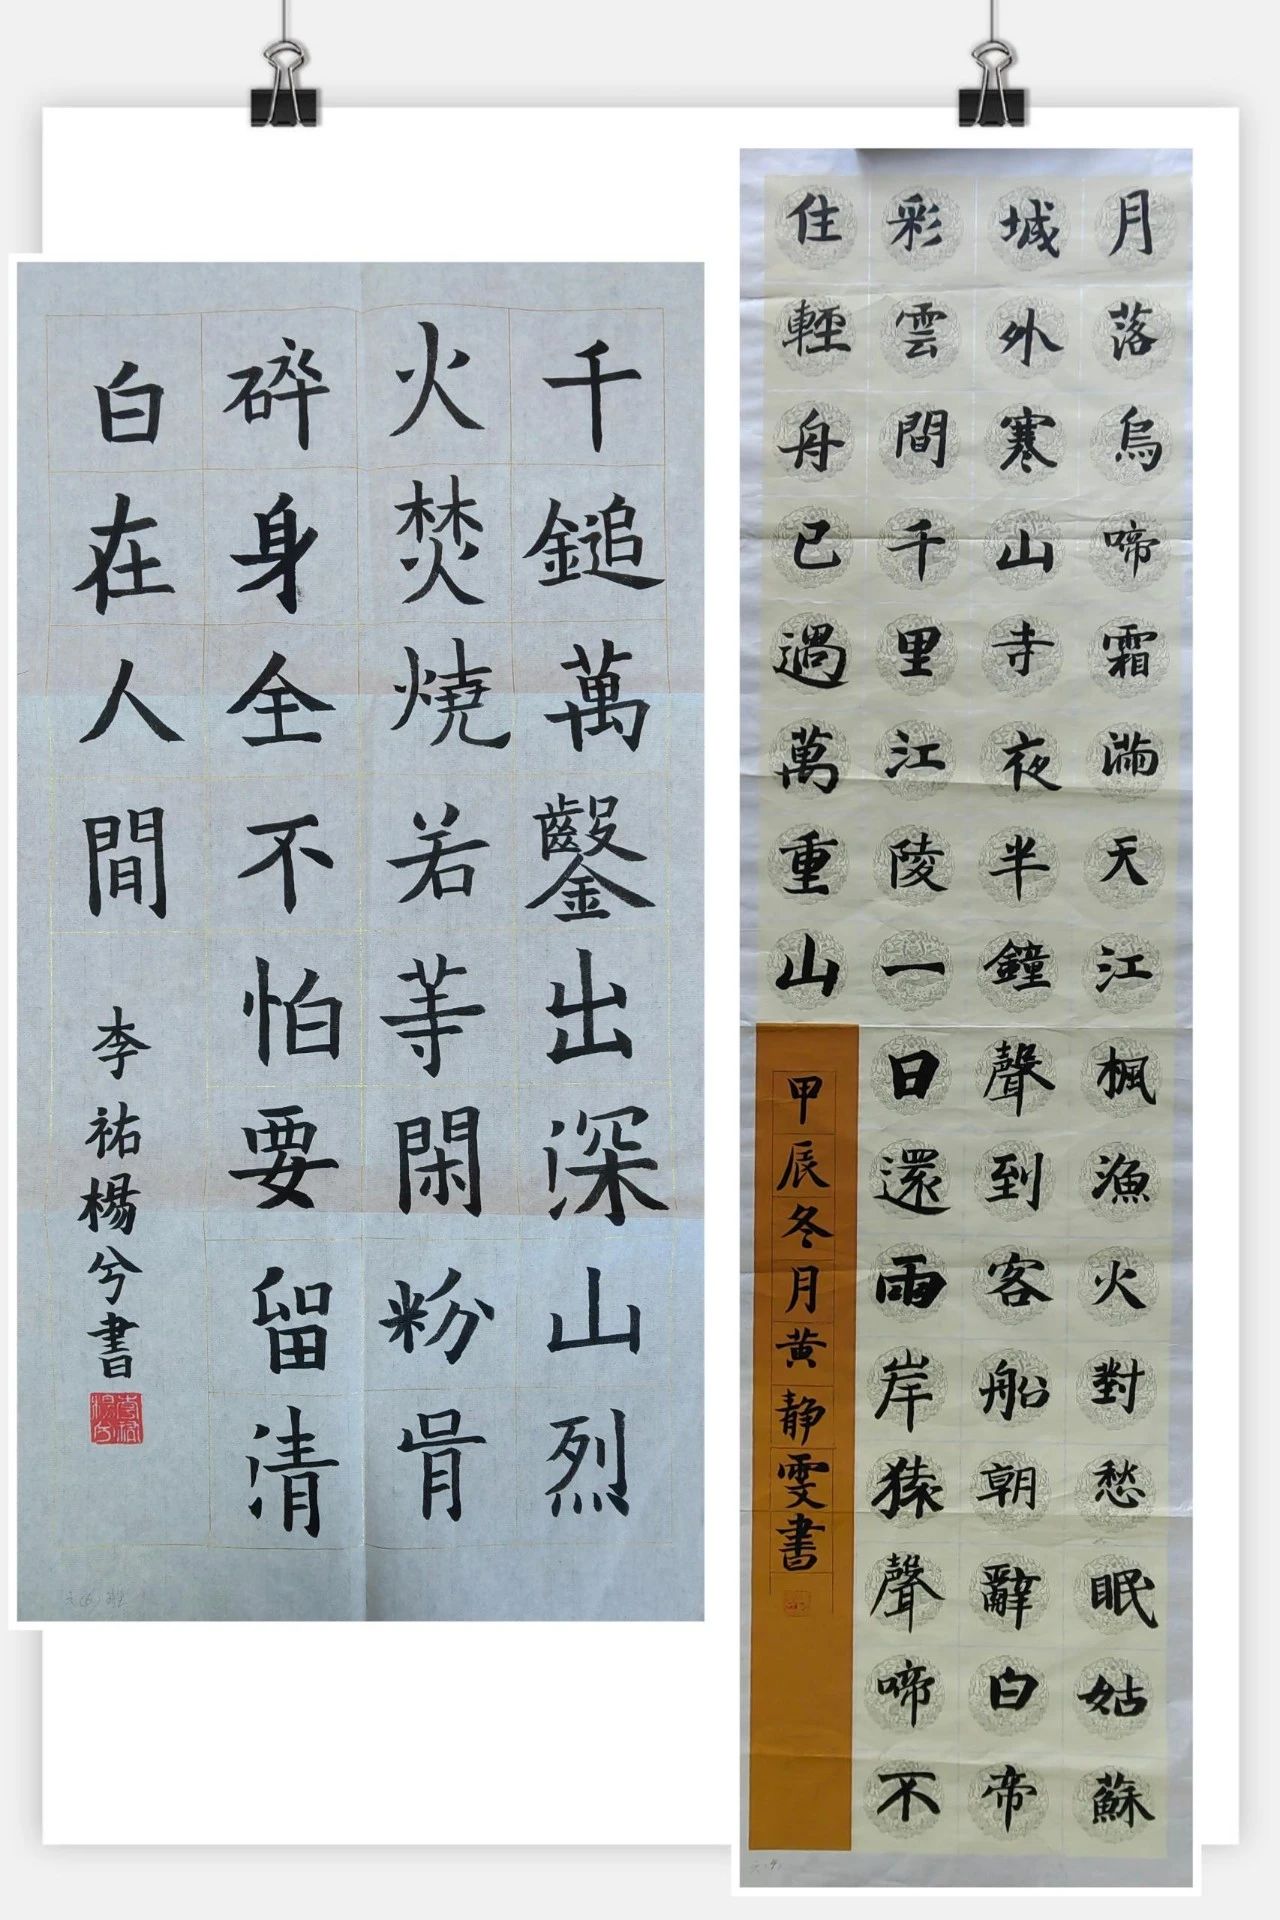 千鎚萬鑿出深山烈
火焚燒若等閑粉骨
碎身全不怕要留清
白在人間
李祐楊兮書
月落烏啼霜滿天江楓漁火對愁眠姑蘇
城外寒山寺夜半鐘聲到客船朝辭白帝
彩雲間千里江陵一日還兩岸猿聲啼不
住輕舟已過萬重山
甲辰冬月黄静雯書